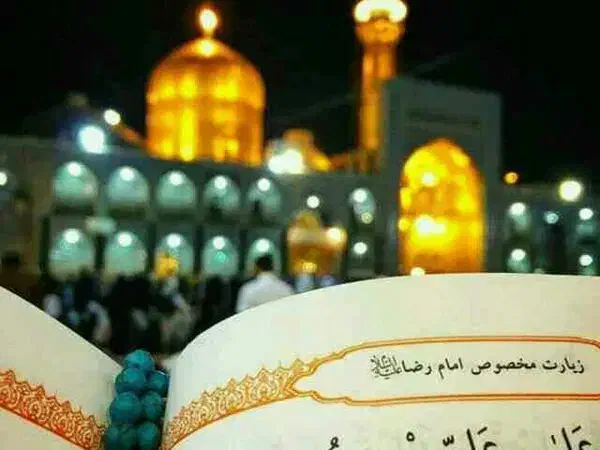 زیارت مخصوص امام رضا علیه‌السلام